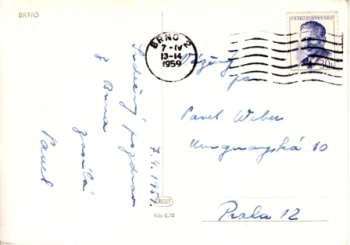 BRNO
BRNO 2
7-IV
13-14
1959
ČESKOSLOVENSKO
Srdečný pozdrav
z Brna
zasílá
Pavel
7.4.1959
Vážený
pan
Pavel Weber
10
Praha 12